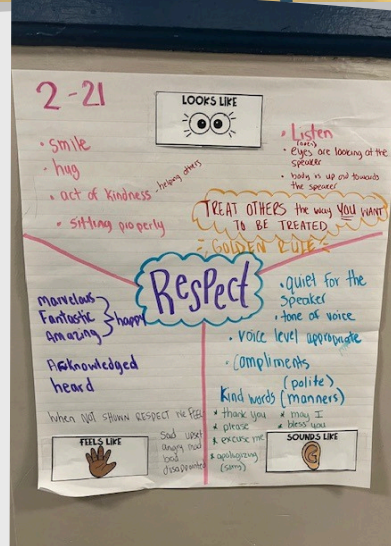 2-21
LOOKS LIKE
• smile
• hug
• act of kindness
- helping others
• sitting properly
• Listen
(ears)
• eyes are looking at the
speaker
• body is up and towards
the speaker
TREAT OTHERS the way YOU WANT
TO BE TREATED
GOLDEN RULE
Respect
Marvelous
Fantastic
Amazing
happy
Acknowledged
heard
When NOT SHOWN RESPECT we FEEL
Sad upset
angry mad
bad
disappointed
FEELS LIKE
• quiet for the
speaker
• tone of voice
• voice level appropriate
• compliments
(polite)
Kind words (manners)
* thank you
* please
* excuse me
* apologizing
(sorry)
* may I
* bless you
SOUNDS LIKE